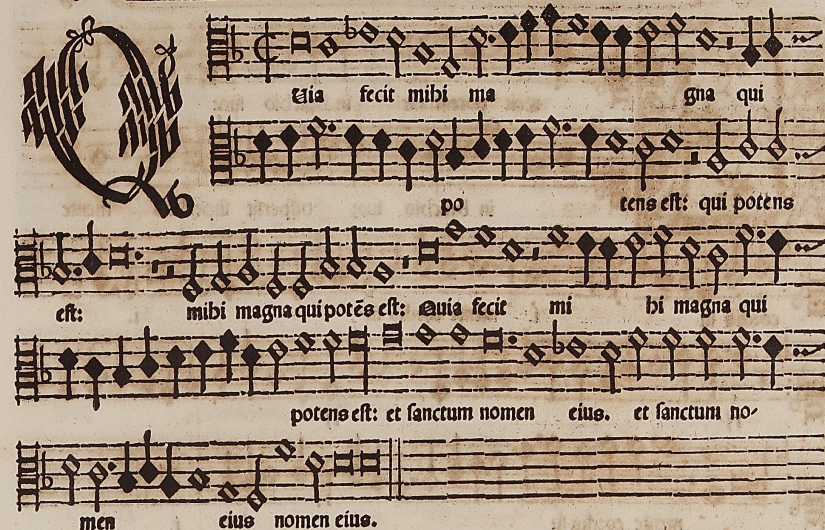 QUia fecit mihi ma gna qui
po tens est: qui potens
est: mihi magna qui potēs est: Quia fecit mi hi magna qui
potens est: et sanctum nomen eius. et sanctum no-
men eius nomen eius.